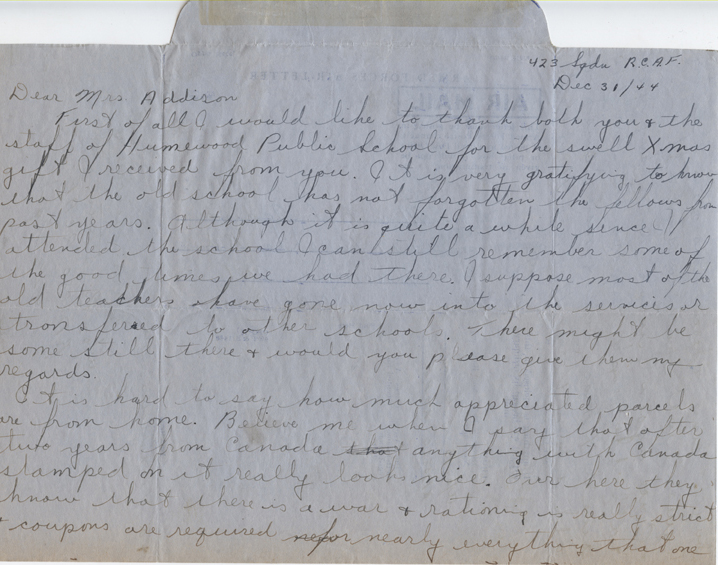 423 Sqdn R.C.A.F.
Dec 31/44
Dear Mrs. Addison
First of all I would like to thank both you & the
staff of Humewood Public School for the swell Xmas
gift I received from you. It is very gratifying to know
that the old school has not forgotten the fellows from
past years. Although it is quite a while since I
attended the school I can still remember some of
the good times we had there. I suppose most of the
old teachers have gone now into the services or
transfered to other schools. There might be
some still there & would you please give them my
regards.
It is hard to say how much appreciated parcels
are from home. Believe me when I say that after
two years from Canada that anything with Canada
stamped on it really looks nice. Over here they
know that there is a war & rationing is really strict
& coupons are required for nearly everything that one